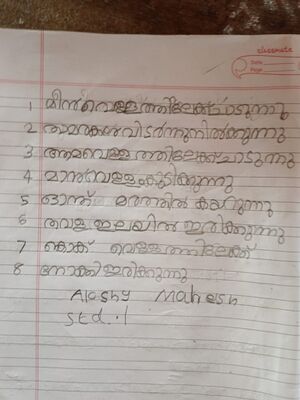 classmate
Date
Page
1 മീൻ വെള്ളത്തിലേക്ക് ചാടുന്നു
2 താമരകൾ വിടർന്നുനിൽക്കുന്നു
3 ആമ വെള്ളത്തിലേക്ക് ചാടുന്നു
4 മാൻ വെള്ളം കുടിക്കുന്നു
5 ഓന്ത് മരത്തിൽ കയറുന്നു
6 തവള ഇലയിൽ ഇരിക്കുന്നു
7 കൊക്ക് വെള്ളത്തിലേക്ക്
8 നോക്കി ഇരിക്കുന്നു
Aloshy Mahesh
std. 1